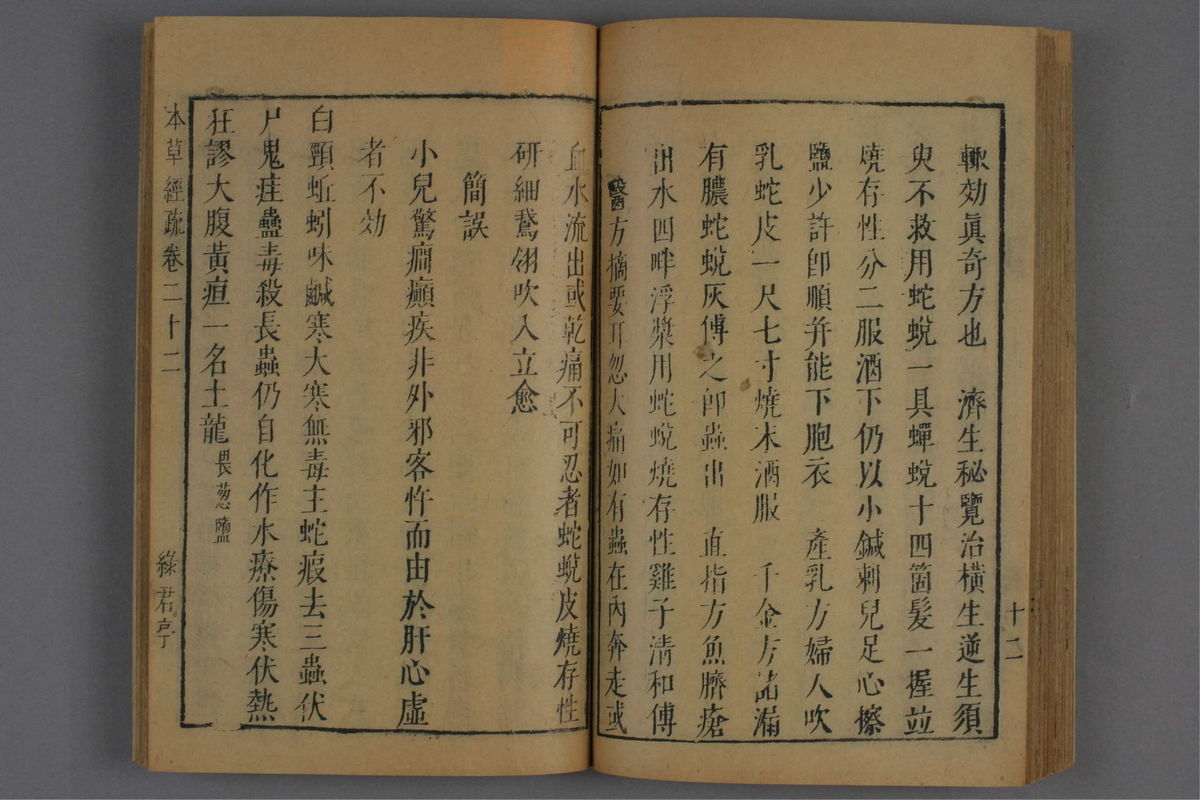 輙効眞奇方也　濟生秘覽治橫生逆生須
臾不救用蛇蛻一具蟬蛻十四箇髮一握並
燒存性分二服酒下仍以小鍼刺兒足心擦
鹽少許卽順幷能下胞衣　產乳方婦人吹
乳蛇皮一尺七寸燒末酒服　千金方諸漏
有膿蛇蛻灰傅之卽蟲出　直指方魚臍瘡
出水四畔浮漿用蛇蛻燒存性雞子清和傅
醫方摘要耳忽大痛如有蟲在內奔走或
十二
血水流出或乾痛不可忍者蛇蛻皮燒存性
研細鵞翎吹入立愈
簡誤
小兒驚癎癲疾非外邪客忤而由於肝心虛
者不効
白頸蚯蚓味鹹寒大寒無毒主蛇瘕去三蟲伏
尸鬼疰蠱毒殺長蟲仍自化作水療傷寒伏熱
狂謬大腹黃疸一名土龍畏葱鹽
本草經疏卷二十二
綠君亭